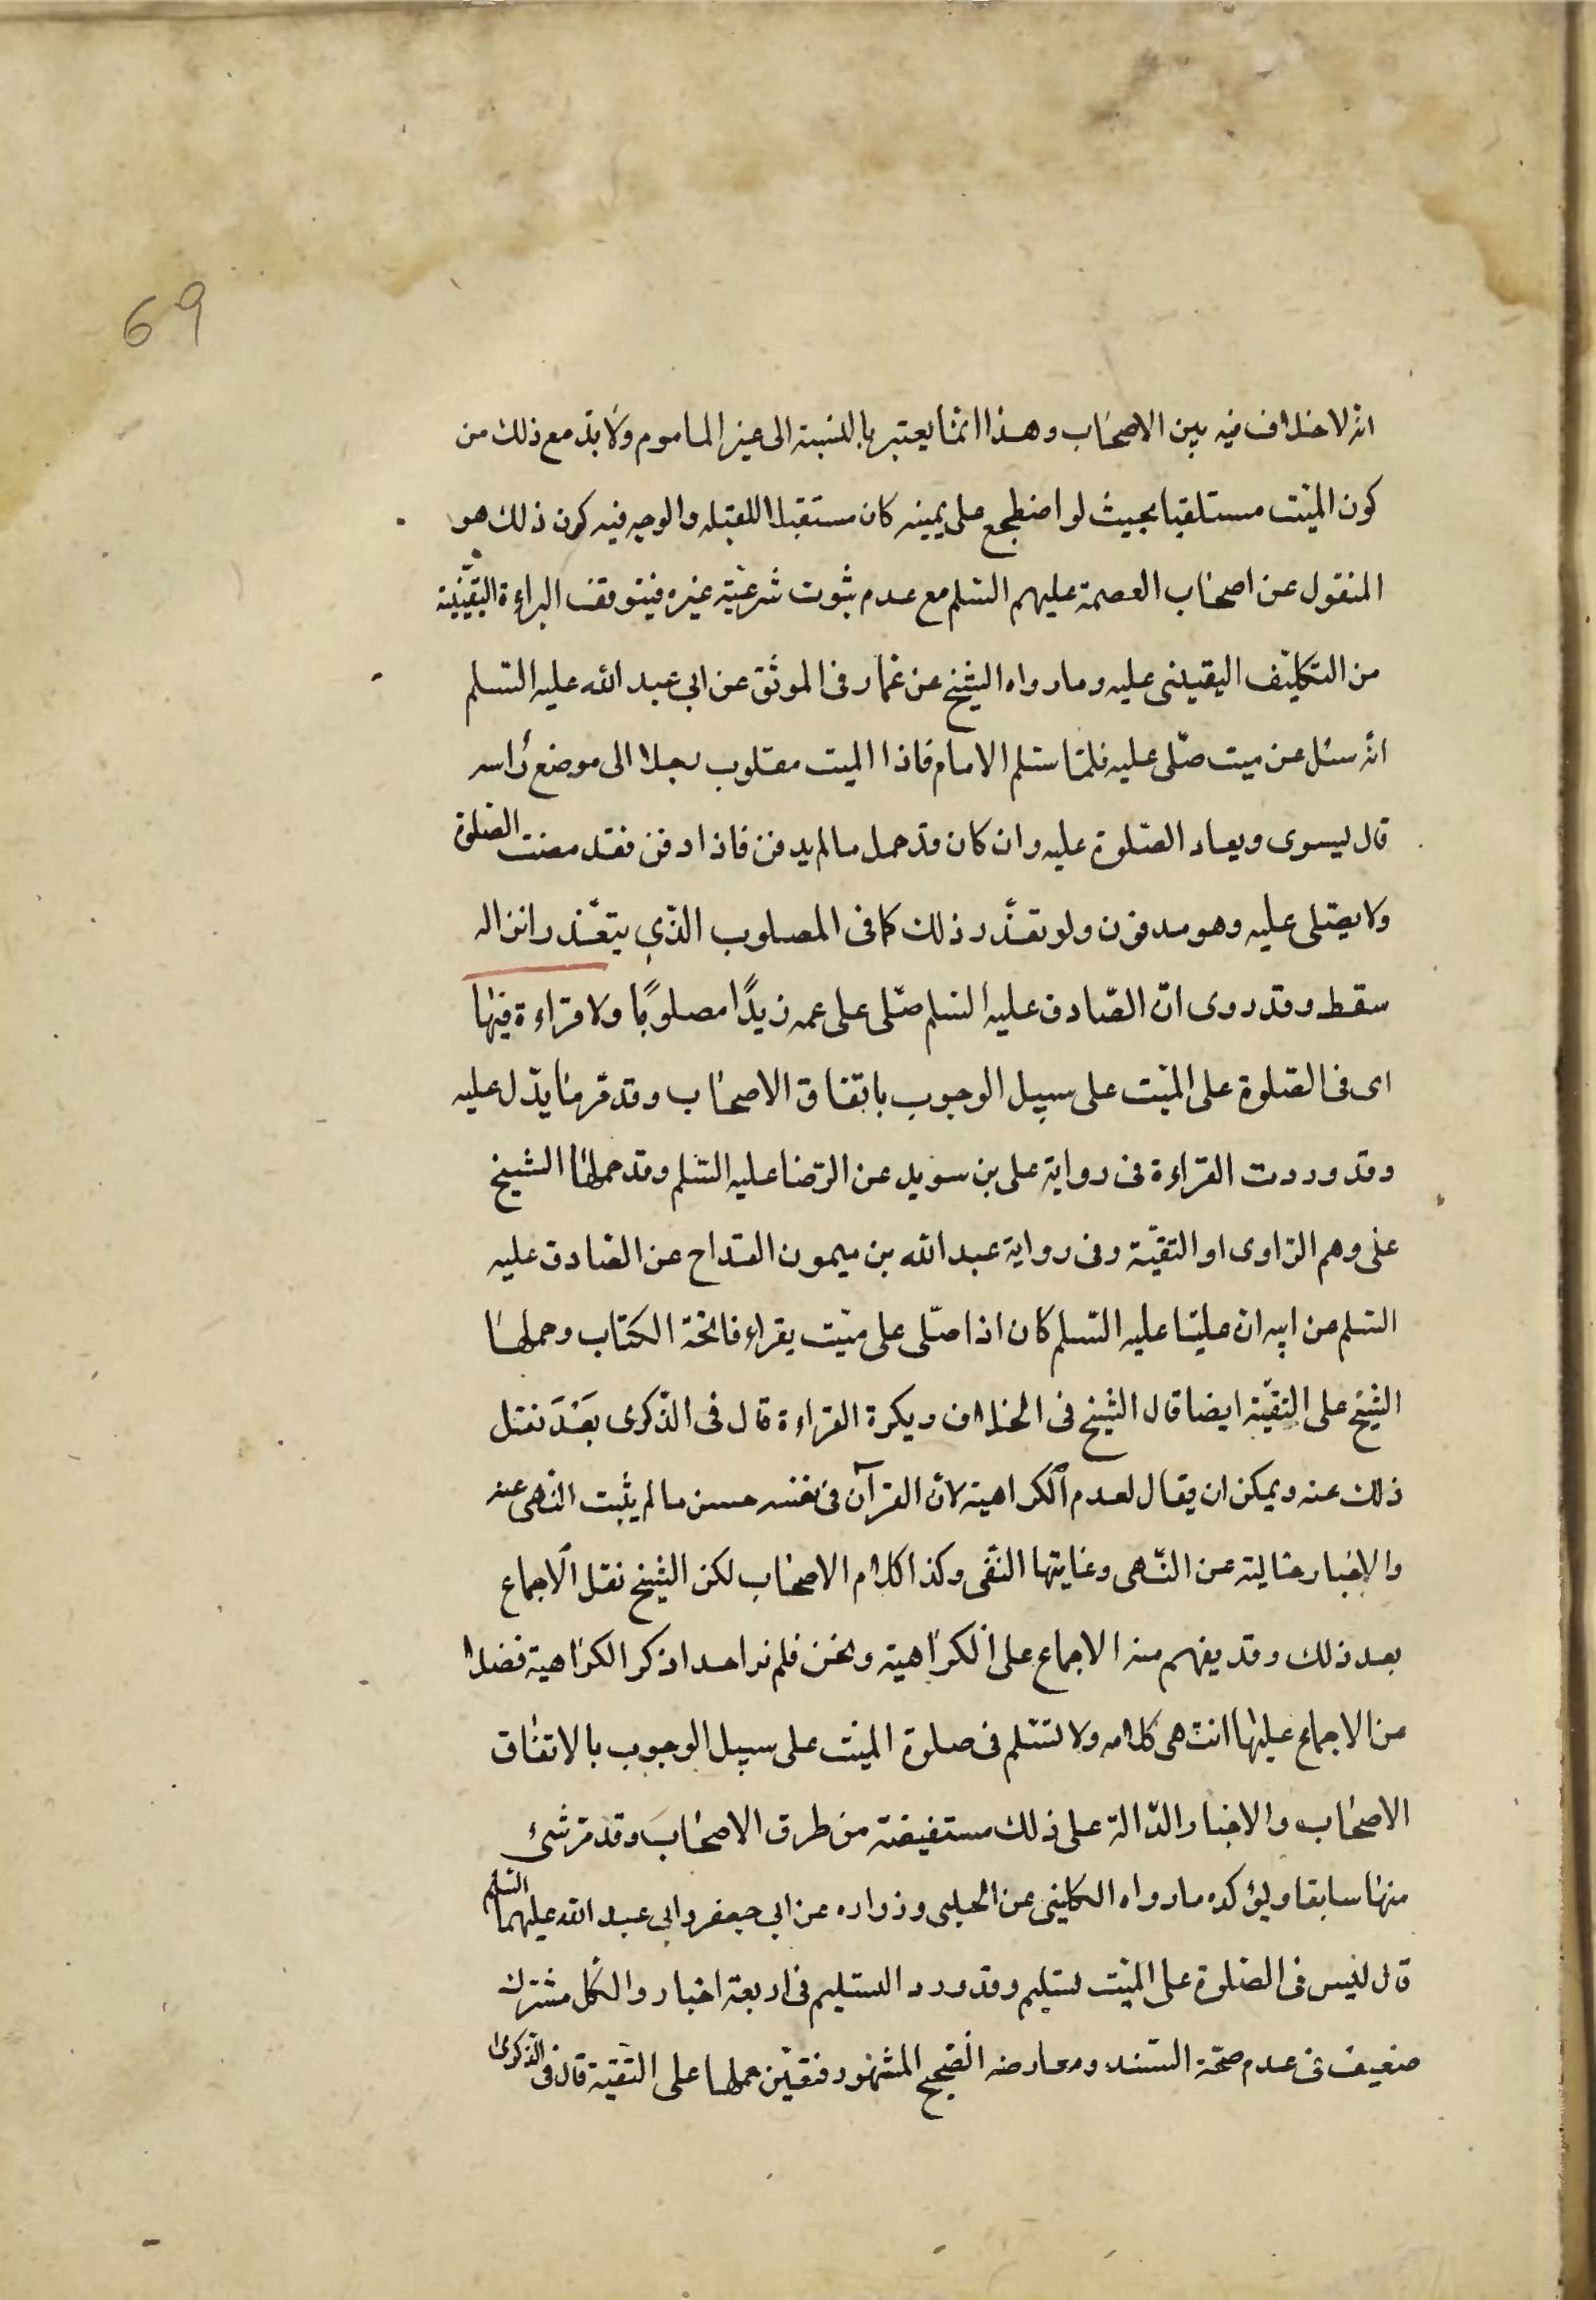 69
انّه لا خلاف فيه بين الاصحاب وهذا انّما يعتبر بالنسبة الى غير الماموم ولا بدّ مع ذلك من
كون الميّت مستلقيا بحيث لو اضطجع على يمينه كان مستقبلا للقبله والوجه فيه كون ذلك هو
المنقول عن اصحاب العصمة عليهم السّلم مع عدم ثبوت شرعيّة غيره فيتوقف البراءة اليقينيّة
من التكليف اليقيني عليه وما رواه الشيخ عن عمّار فى الموثق عن ابي عبد الله عليه السّلم
انّه سئل عن ميت صلّى عليه فلمّا سلّم الامام فاذا الميت مقلوب رجلا الى موضع رأسه
قال يسوى ويعاد الصّلوة عليه وان كان قد حمل ما لم يدفن فاذا دفن فقد مضت الصّلوة
ولا يصلّى عليه وهو مدفون ولو تعذّر ذلك كما فى المصلوب الذّي يتعّذر انزاله
سقط وقد روى انّ الصّادق عليه السّلم صلّى على عمه زيدًا مصلوبًا ولا قراءة فيها
اى فى الصّلوة على الميّت على سبيل الوجوب باتفاق الاصحاب وقد مّر ما يدّل عليه
وقد وردت القراءة فى رواية على بن سويد عن الرّضا عليه السّلم وقد حملها الشيخ
على وهم الرّاوى او التقيّة وفى رواية عبد الله بن ميمون القداح عن الصّادق عليه
السّلم عن ابيه ان عليّا عليه السّلم كان اذا صلّى على ميّت يقراء فاتحة الكتاب وحملها
الشيخ على التقيّة ايضا قال الشيخ فى الخلاف ويكرة القراءة قال فى الذّكرى بَعْدَ نقل
ذلك عنه ويمكن ان يقال لعدم الكراهية لانّ القرآن فى نفسه حسن ما لم يثبت النّهى عنه
والاخبار خالية عن النّهى وغايتها النّفى وكذا كلام الاصحاب لكن الشيخ نقل الاجماع
بعد ذلك وقد يفهم منه الاجماع على الكراهية ونحن فلم نر احدا ذكر الكراهية فضلا
من الاجماع عليها انتهى كلامه ولا تسّلم فى صلوة الميّت على سبيل الوجوب بالاتفاق
الاصحاب والاخبار الدّالة على ذلك مستفيضة من طرق الاصحاب وقد مّر شئ
منها سابقا ويؤكده ما رواه الكلينى عن الحلبى وزراره عن ابي جعفر وابي عبد الله عليهما السّلم
قال ليس فى الصّلوة على الميّت تسليم وقد ورد التسليم فى اربعة اخبار والكّل مشترك
ضعيف فى عدم صحّة السّند ومعارضه الصّحيح المشهور فتعيّن حملها على التّقية قال فى الذّكرى